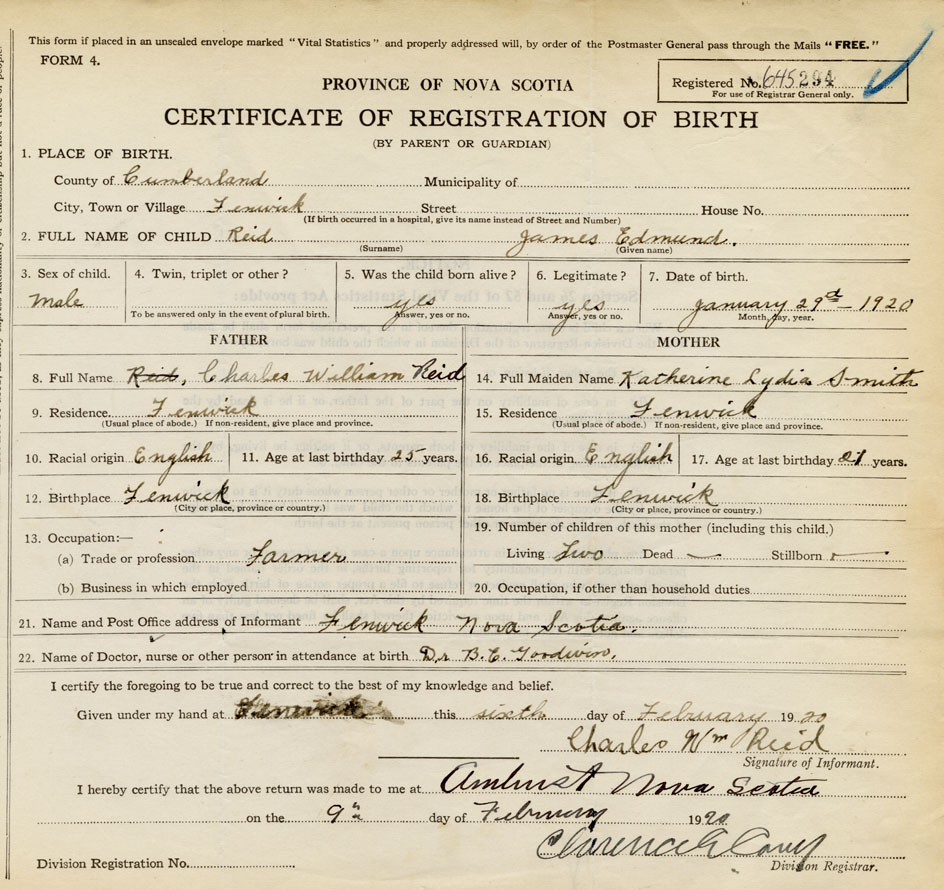 This form if placed in an unsealed envelope marked "Vital Statistics" and properly addressed will, by order of the Postmaster General pass through the Mails "FREE."
FORM 4.
PROVINCE OF NOVA SCOTIA
Registered No. 645294
For use of Registrar General only.
CERTIFICATE OF REGISTRATION OF BIRTH
(BY PARENT OR GUARDIAN)
1. PLACE OF BIRTH.
County of Cumberland Municipality of
City, Town or Village Fenwick Street House No.
(If birth occurred in a hospital, give its name instead of Street and Number)
2. FULL NAME OF CHILD Reid James Edmund.
(Surname) (Given name)
3. Sex of child. 4. Twin, triplet or other? 5. Was the child born alive? 6. Legitimate? 7. Date of birth.
Male yes yes January 29th - 1920
To be answered only in the event of plural birth. Answer, yes or no. Answer, yes or no. Month, day, year.
FATHER MOTHER
8. Full Name Reid, Charles William Reid 14. Full Maiden Name Katherine Lydia Smith
9. Residence. Fenwick 15. Residence Fenwick
(Usual place of abode.) If non-resident, give place and province. (Usual place of abode.) If non-resident, give place and province.
10. Racial origin English 11. Age at last birthday 25 years. 16. Racial origin English 17. Age at last birthday 21 years.
12. Birthplace Fenwick 18. Birthplace Fenwick
(City or place, province or country.) (City or place, province or country.)
13. Occupation:— 19. Number of children of this mother (including this child.)
(a) Trade or profession Farmer Living Two Dead — Stillborn —
(b) Business in which employed 20. Occupation, if other than household duties
21. Name and Post Office address of Informant Fenwick Nova Scotia.
22. Name of Doctor, nurse or other person in attendance at birth Dr B.C. Goodwin.
I certify the foregoing to be true and correct to the best of my knowledge and belief.
Given under my hand at Fenwick this sixth day of February 1920
Charles Wm Reid
Signature of Informant.
I hereby certify that the above return was made to me at Amherst Nova Scotia
on the 9th day of February 1920
Clarence
Division Registration No. Division Registrar.